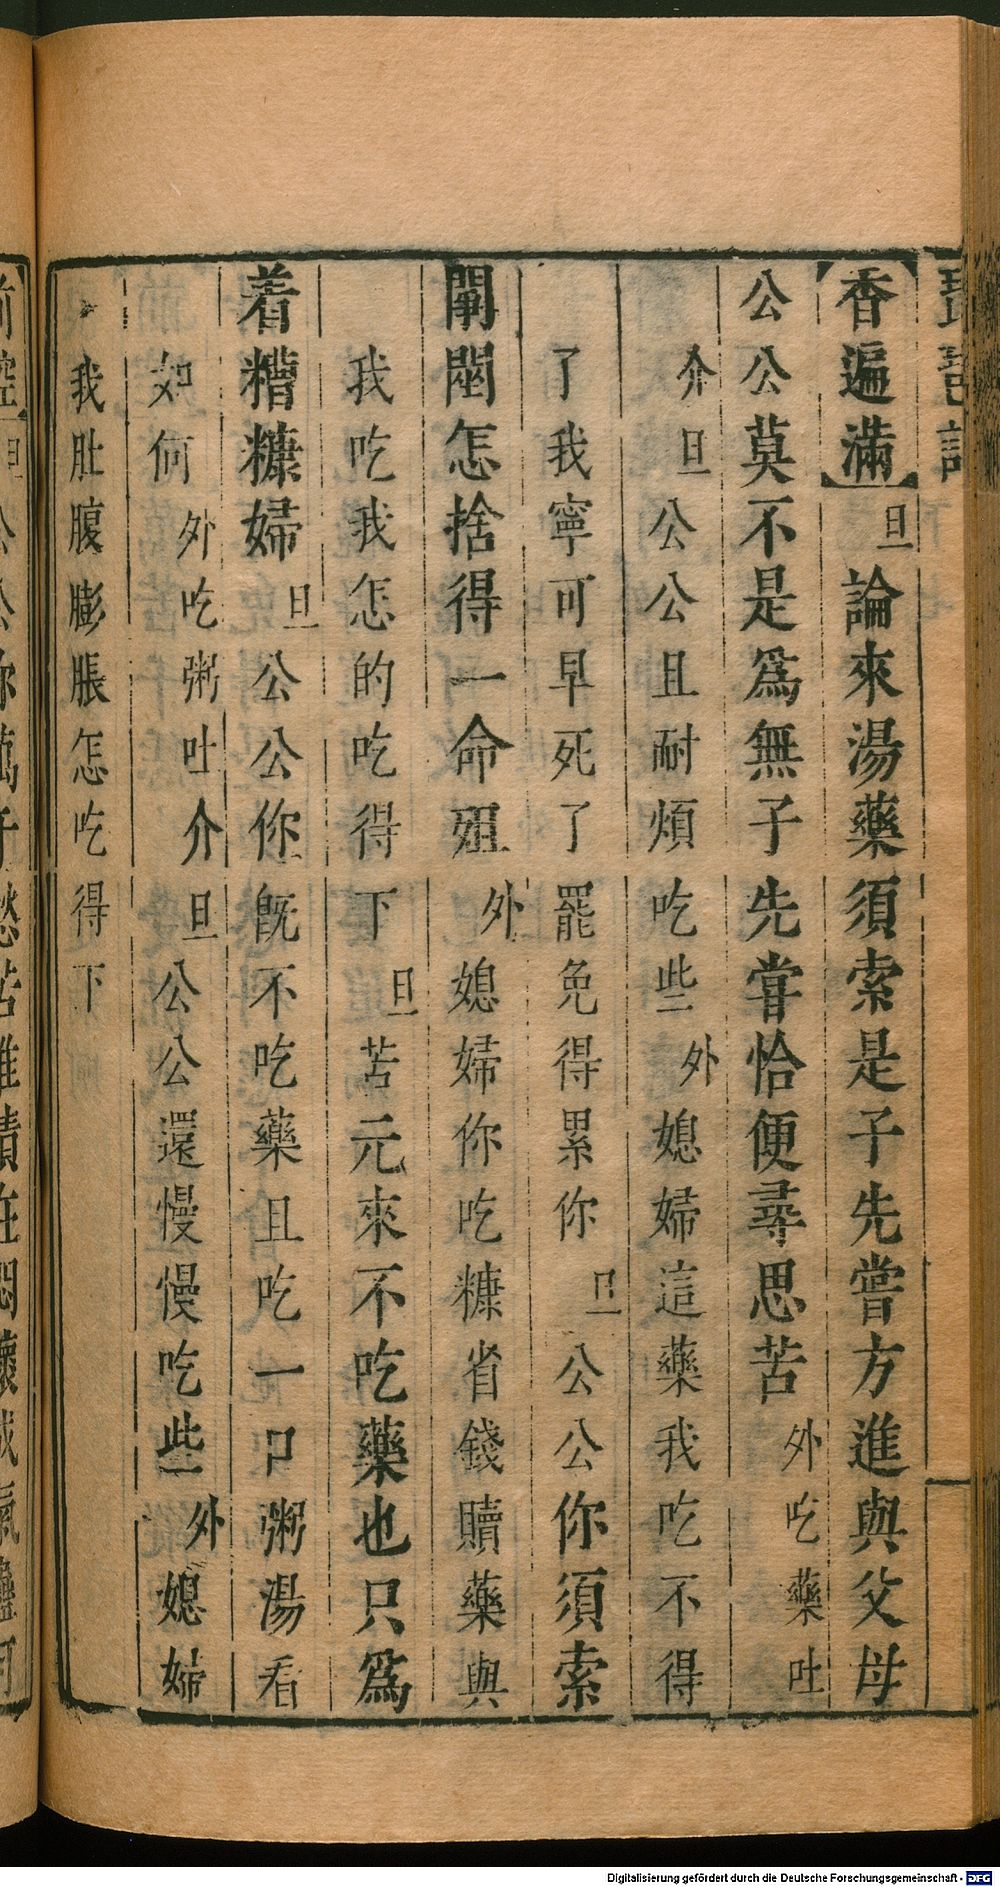 琵琶記
香遍滿旦論來湯藥須索是子先嘗方進與父母
公公莫不是爲無子先嘗恰便尋思苦外吃藥吐
介旦公公且耐煩吃些外媳婦這藥我吃不得
了我寧可早死了罷免得累你旦公公你須索
闡閭怎捨得一命殂外媳婦你吃糠省錢贖藥與
我吃我怎的吃得下旦苦元來不吃藥也只爲
着糟糠婦旦公公你旣不吃藥且吃一口粥湯看
如何外吃粥吐介旦公公還慢慢吃些外媳婦
我肚腹膨脹怎吃得下
前腔旦公公你萬千愁苦難積在悶懷成氣
Digitalisierung gefördert durch die Deutsche Forschungsgemeinschaft - DFG